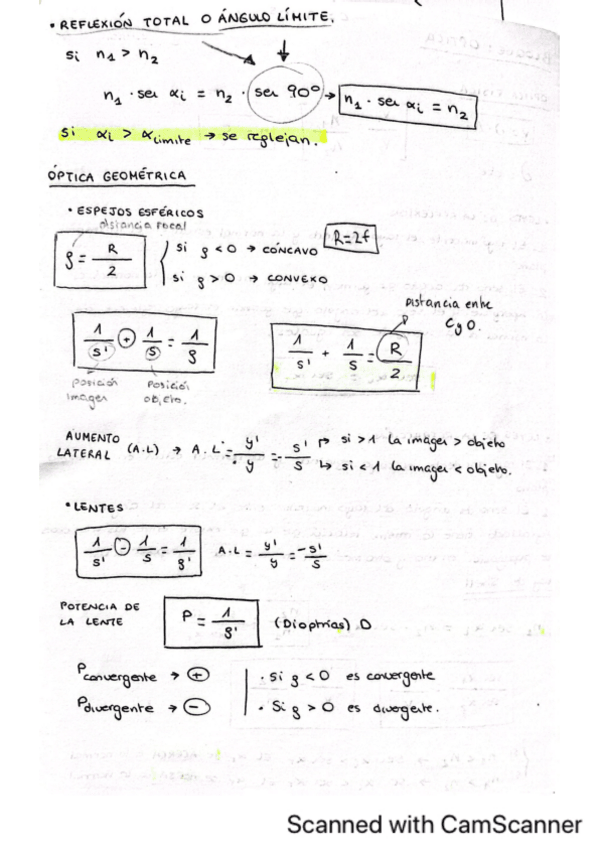 • REFLEXIÓN TOTAL O ÁNGULO LÍMITE.
si n1 > n2
n1 · sen αi = n2 · sen 90º → n1 · sen αi = n2
si αi > αlímite → se reflejan.
ÓPTICA GEOMÉTRICA
• ESPEJOS ESFÉRICOS
distancia focal
f = R/2 { si f < 0 → CÓNCAVO R=2f
si f > 0 → CONVEXO
Distancia entre C y O.
1/s' + 1/s = 1/f
1/s' + 1/s = R/2
posición imagen
posición objeto.
AUMENTO LATERAL (A.L) → A.L = y'/y = - s'/s → si > 1 la imagen > objeto
↳ si < 1 la imagen < objeto.
• LENTES
1/s' - 1/s = 1/f' A.L = y'/y = -s'/s
POTENCIA DE LA LENTE P = 1/f' (Dioptrías) D
Pconvergente → + | · Si f < 0 es convergente
Pdivergente → - | · Si f > 0 es divergente.
Scanned with CamScanner